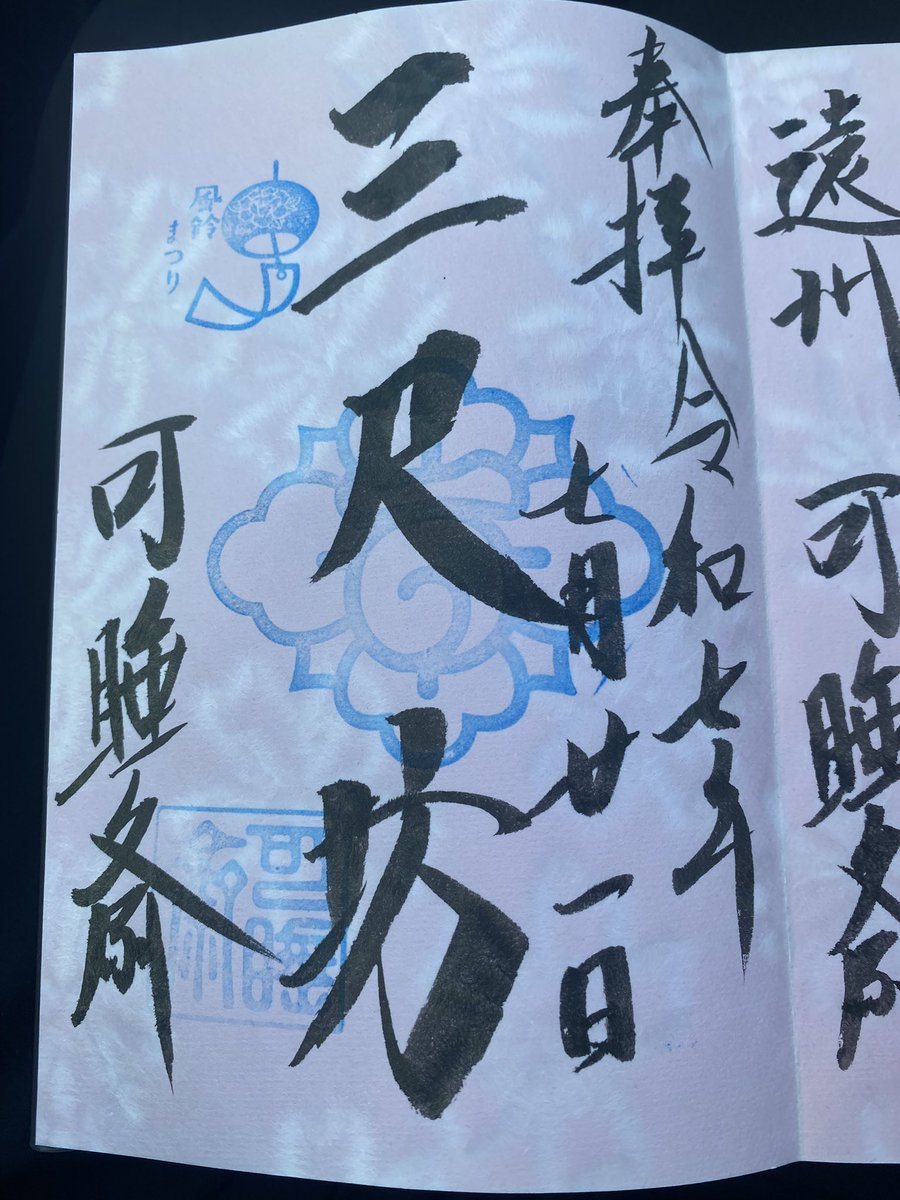 遠州
可睡斎
奉拝 令和七年
七月廿一日
三尺坊
風鈴
まつり
可睡斎